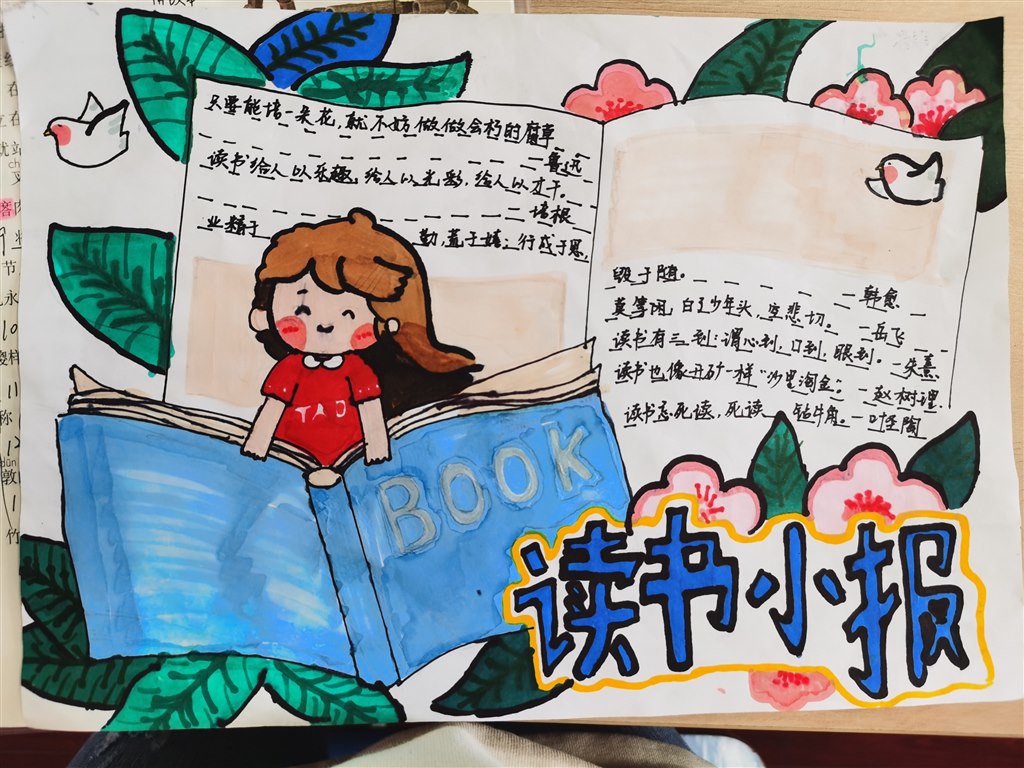 只要能培一朵花,就不妨做做会朽的腐草
——鲁迅
读书给人以乐趣,给人以光彩,给人以才干。
——培根
业精于勤,荒于嬉,行成于思,
毁于随。——韩愈
莫等闲,白了少年头,空悲切。——岳飞
读书有三到:谓心到,口到,眼到。—朱熹
读书也像开矿一样"沙里淘金"。—赵树理
读书忌死读,死读 钻牛角。—叶圣陶
TAD
BOOK
读书小报